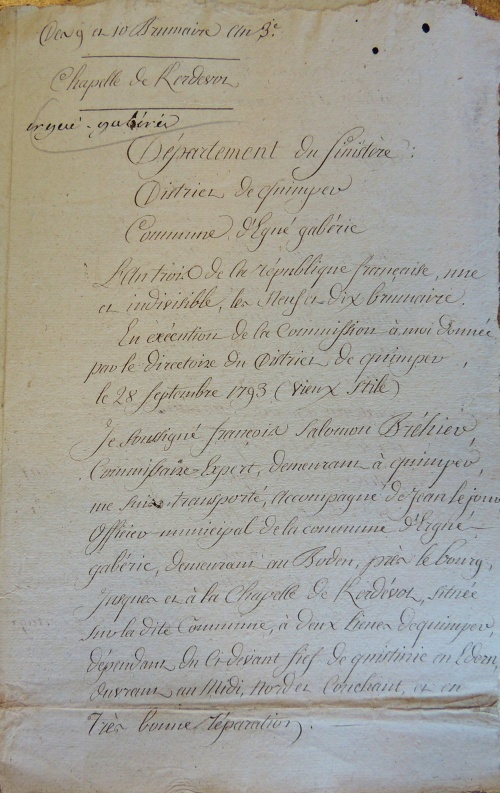 Des 9 et 10 Brumaire an 3.e
Chapelle de Kerdevot
ergué-gabéric
Département du finistère :
District de quimper
Commune d'Egué gabéric
L'an trois de la république française, une
et indivisible, les Neuf et dix brumaire.
En exécution de la Commission à moi donnée
par le directoire du District de quimper,
le 28 Septembre 1793 (vieux stile)
Je soussigné françois Salomon Bréhier,
Commissaire-Expert, demeurant à quimper,
me suis transporté, accompagné de Jean le jour
Officier municipal de la commune d'Ergué-
gabéric, demeurant au Boden, près le bourg,
jusques et à la Chapelle de Kerdévot, située
sur la dite Commune, à deux Lieues de quimper
dépendant du Ci devant fief de quistinic en Edern,
Ouvrant au Midi, Nord et Couchant, et en
Très bonne réparation.